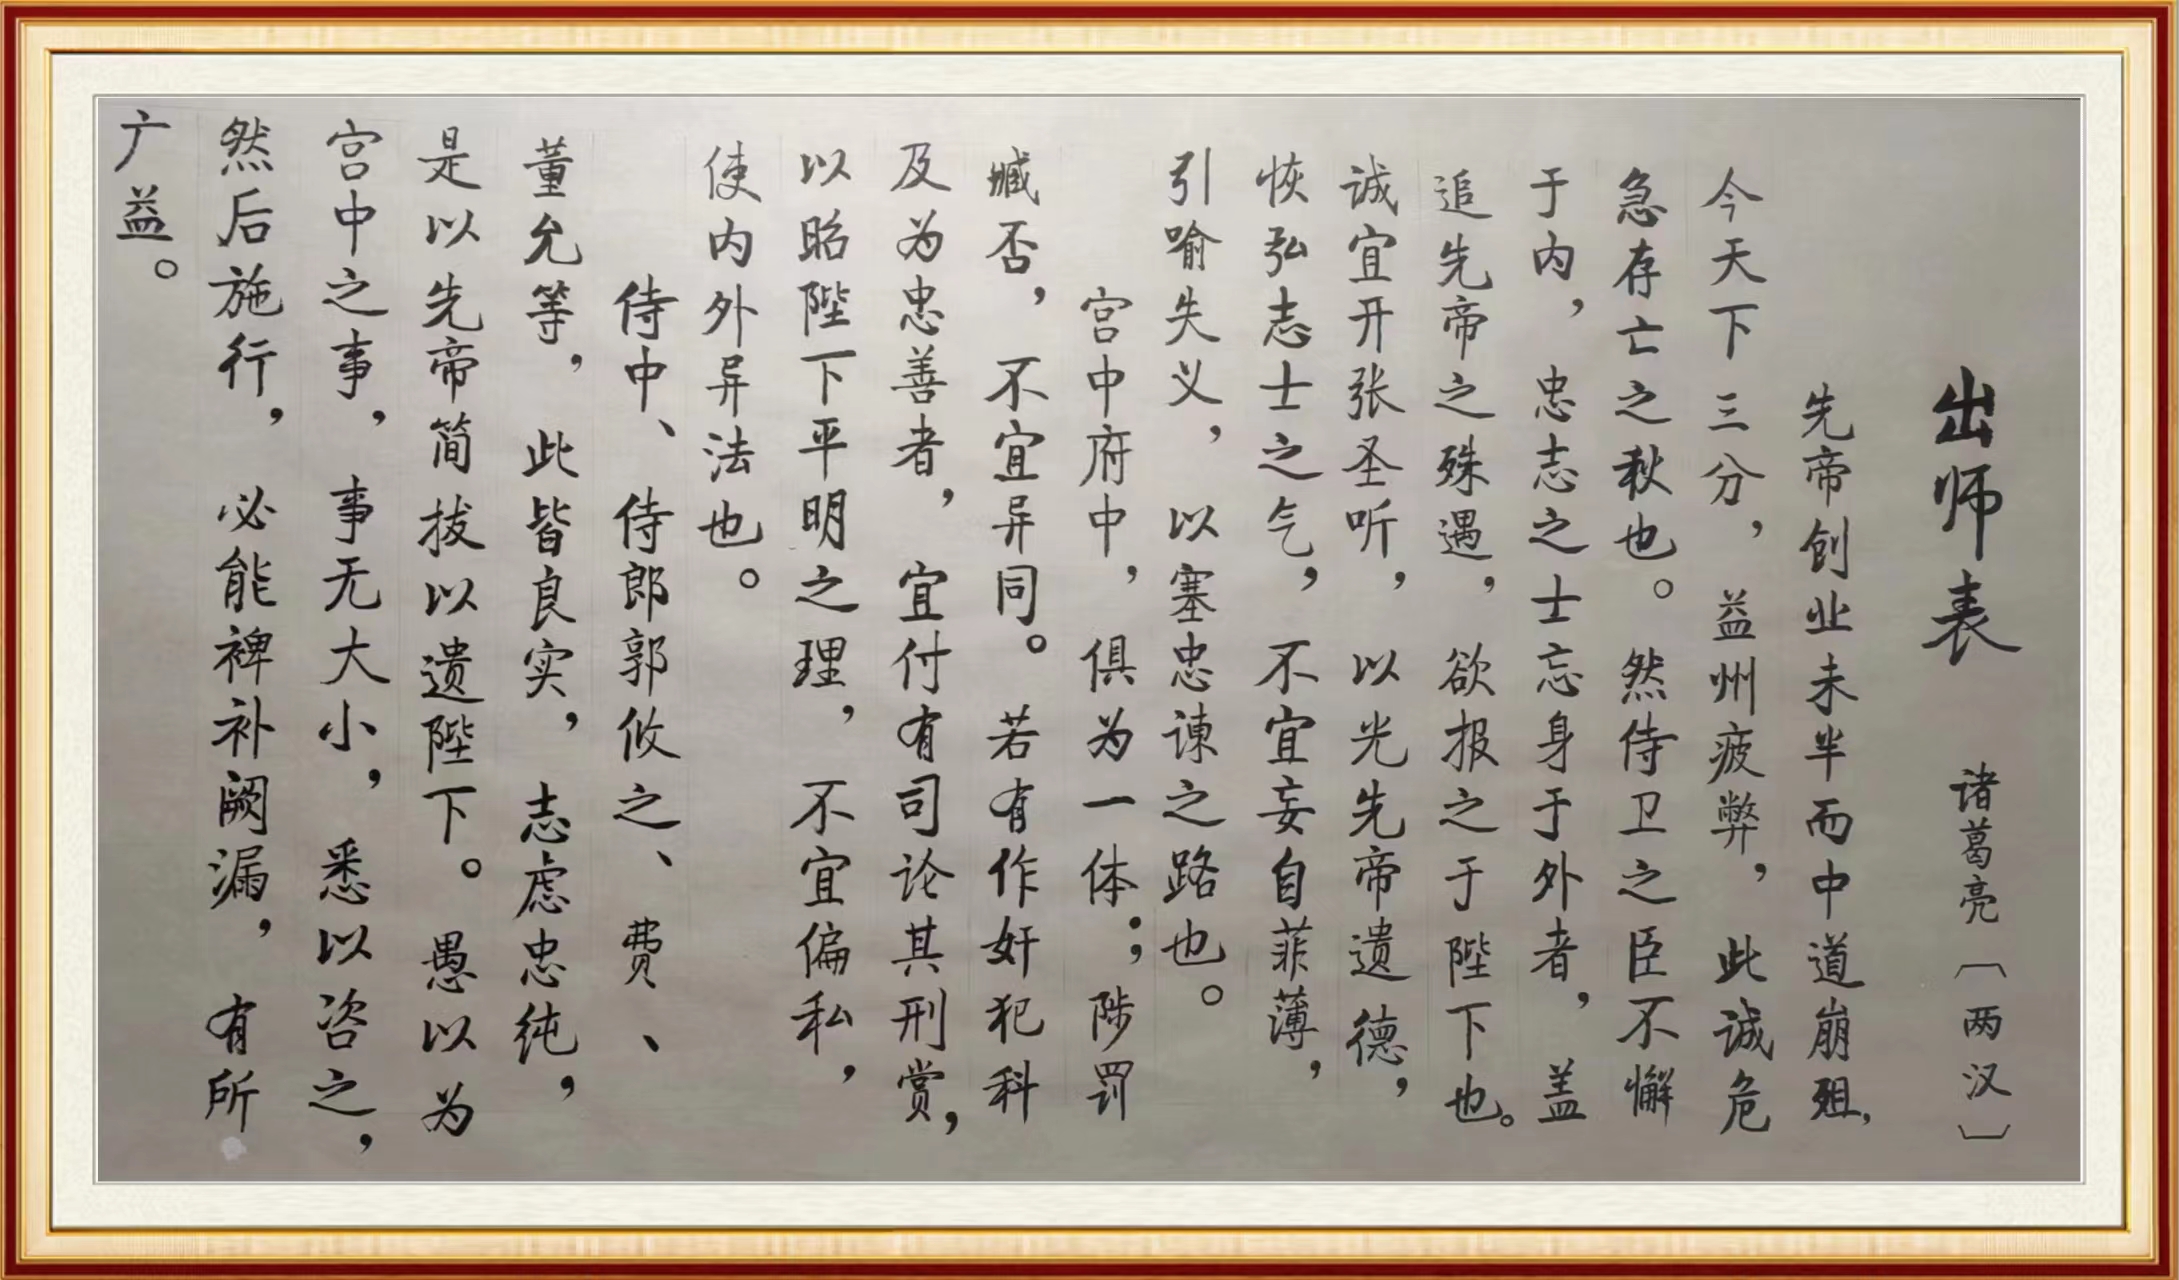 出师表 诸葛亮〔两汉〕
先帝创业未半而中道崩殂,
今天下三分,益州疲弊,此诚危
急存亡之秋也。然侍卫之臣不懈
于内,忠志之士忘身于外者,盖
追先帝之殊遇,欲报之于陛下也。
诚宜开张圣听,以光先帝遗德,
恢弘志士之气,不宜妄自菲薄,
引喻失义,以塞忠谏之路也。
宫中府中,俱为一体;陟罚
臧否,不宜异同。若有作奸犯科
及为忠善者,宜付有司论其刑赏,
以昭陛下平明之理,不宜偏私,
使内外异法也。
侍中、侍郎郭攸之、费、
董允等,此皆良实,志虑忠纯,
是以先帝简拔以遗陛下。愚以为
宫中之事,事无大小,悉以咨之,
然后施行,必能裨补阙漏,有所
广益。